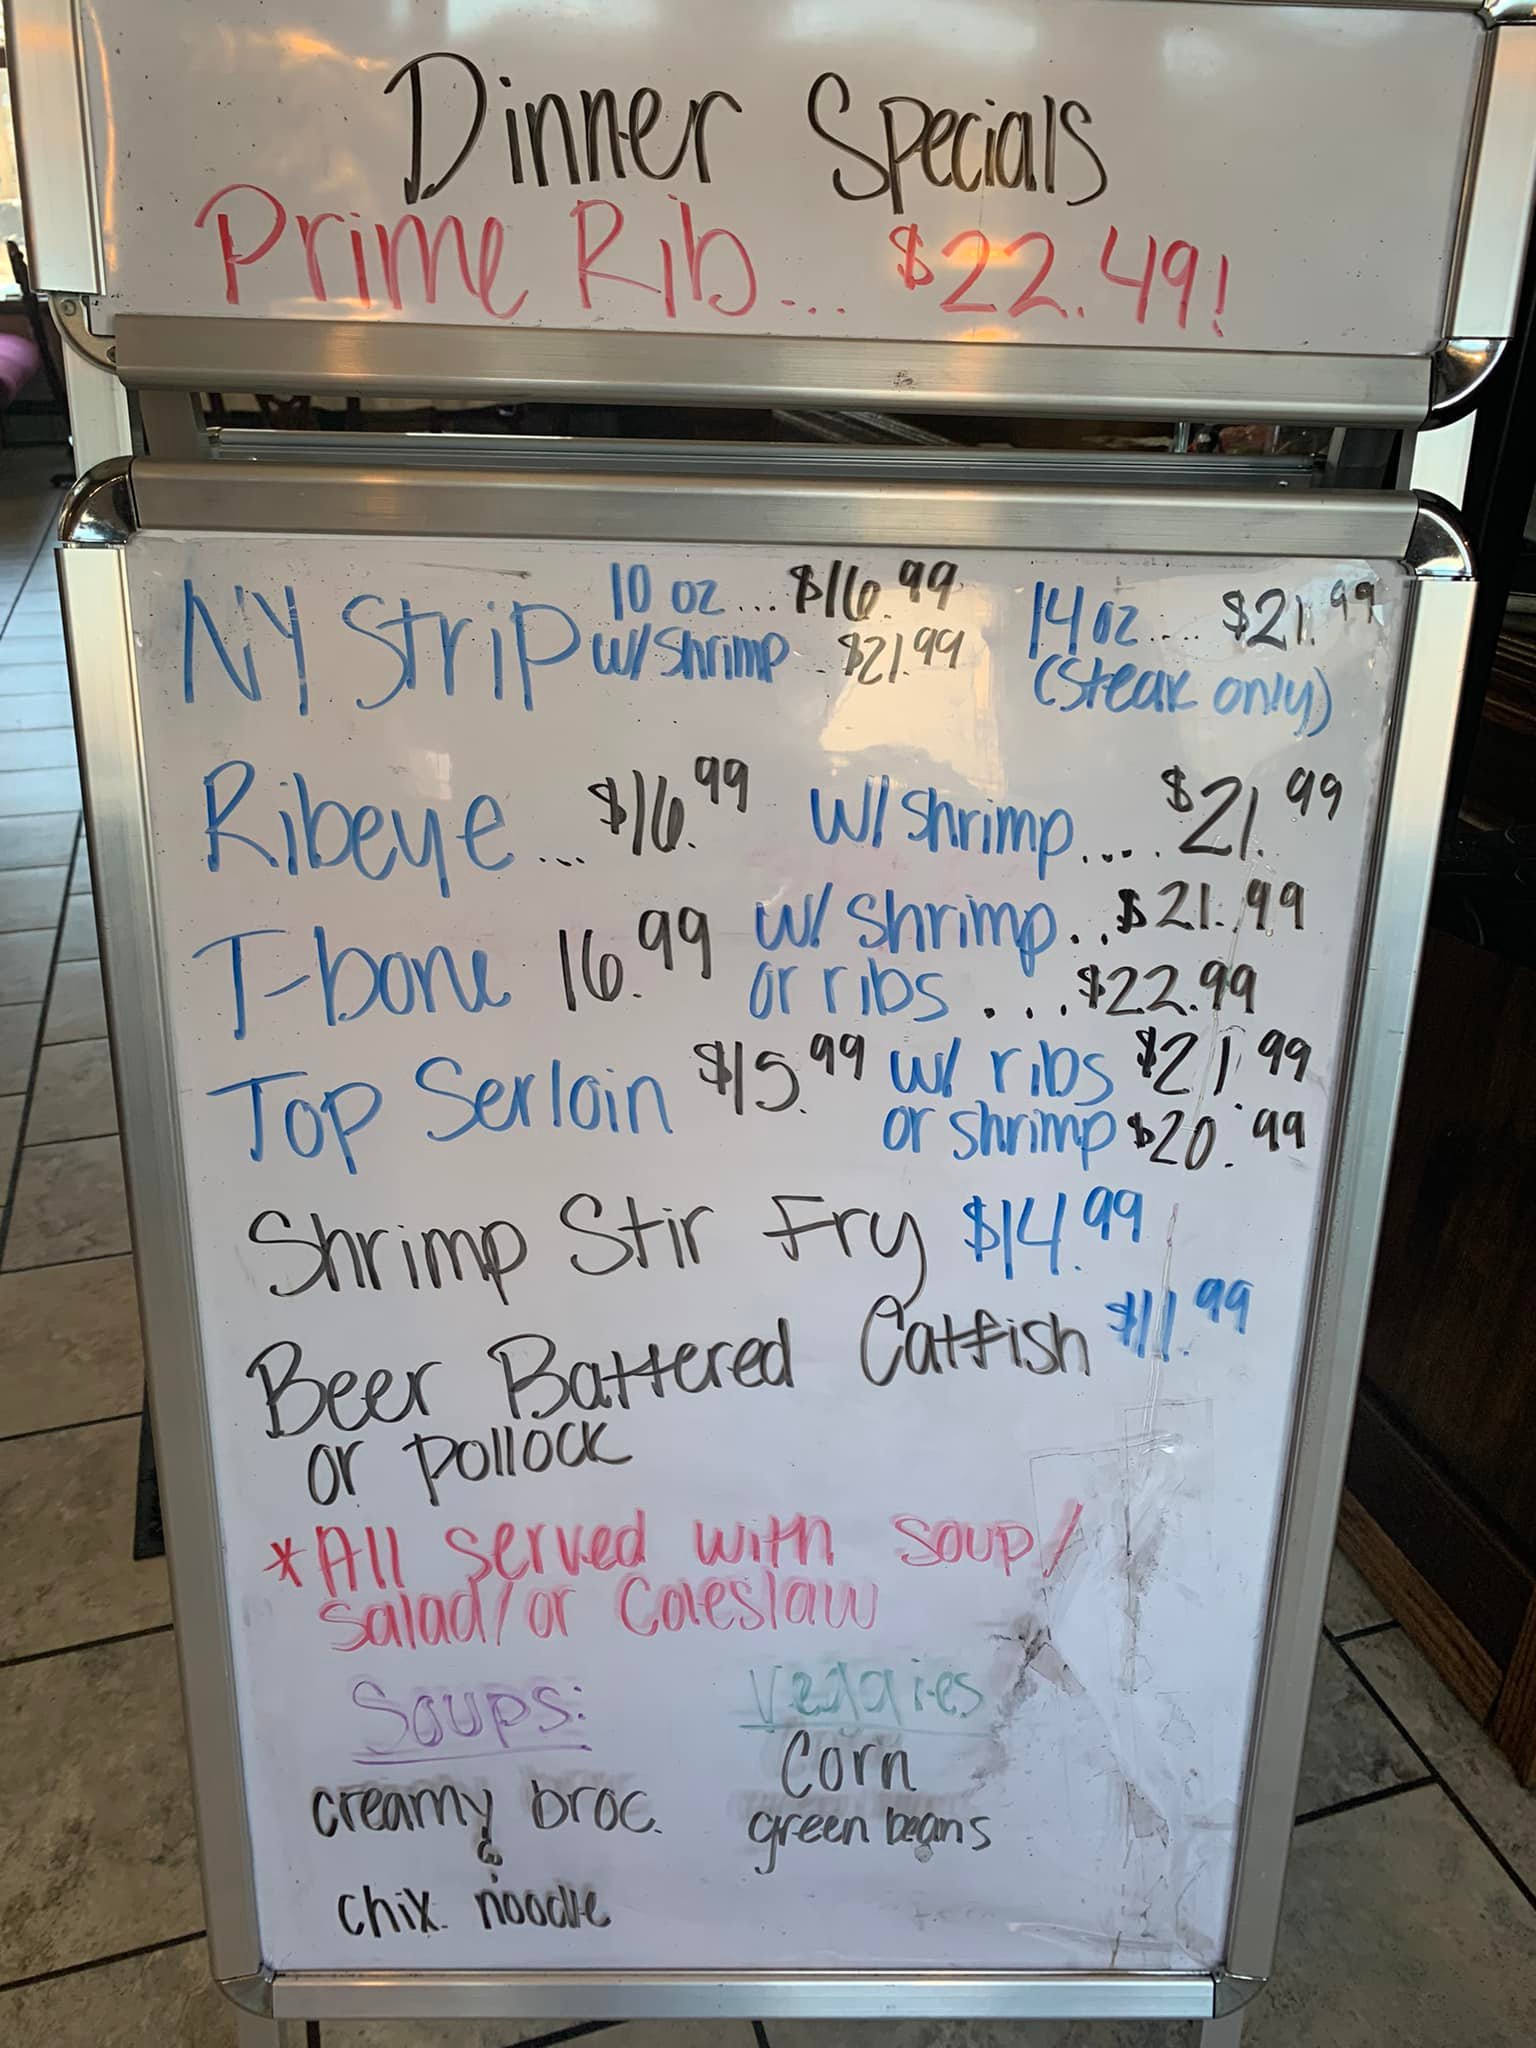 Dinner Specials
Prime Rib... $22.49!
NY Strip 10 oz ... $16.99 14 oz .... $21.99
w/shrimp $21.99 (steak only)
Ribeye ... $16.99 w/ shrimp .... $21.99
T-bone 16.99 w/ shrimp .. $21.99
or ribs .... $22.99
Top Serloin $15.99 w/ ribs $21.99
or shrimp $20.99
Shrimp Stir Fry $14.99
Beer Battered Catfish $11.99
or pollock
*All served with soup/
salad/or Coleslaw
Soups: Veggies
creamy broc. Corn
& green beans
chix. noodle